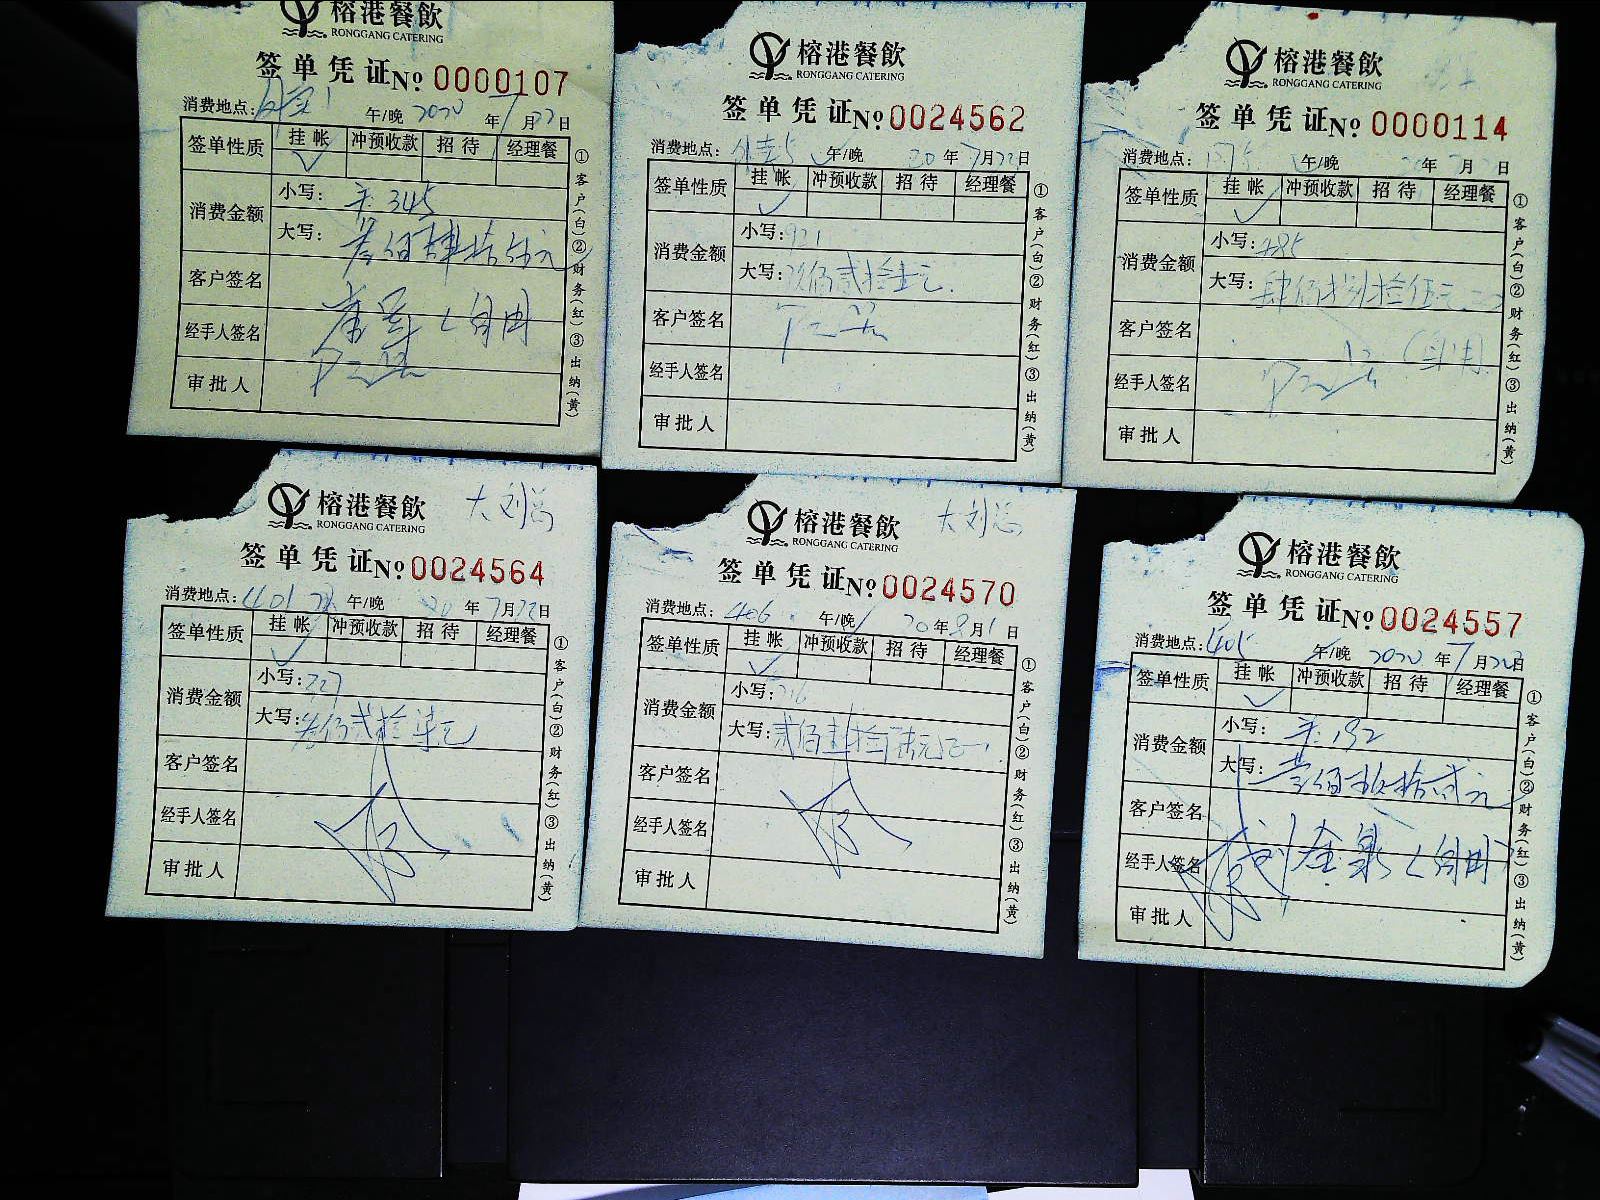 榕港餐飲
RONGGANG CATERING
签单凭证№ 0000107
消费地点: 午/晚 2020年7月22日
签单性质 挂帐 冲预收款 招待 经理餐
✓
消费金额 小写: 345
大写: 叁佰肆拾伍元
客户签名
经手人签名 (自用
审批人
①客户(白)②财务(红)③出纳(黄)
榕港餐飲
RONGGANG CATERING
签单凭证№ 0024562
消费地点: 午/晚 20年7月22日
签单性质 挂帐 冲预收款 招待 经理餐
✓
消费金额 小写: 921
大写: 玖佰贰拾壹元.
客户签名
经手人签名
审批人
①客户(白)②财务(红)③出纳(黄)
榕港餐飲
RONGGANG CATERING
签单凭证№ 0000114
消费地点: 午/晚 年7月 日
签单性质 挂帐 冲预收款 招待 经理餐
✓
消费金额 小写: 485
大写: 肆佰捌拾伍元
客户签名
经手人签名 (自用
审批人
①客户(白)②财务(红)③出纳(黄)
榕港餐飲 大刘总
RONGGANG CATERING
签单凭证№ 0024564
消费地点: 401 午/晚 20年7月22日
签单性质 挂帐 冲预收款 招待 经理餐
✓
消费金额 小写: 327
大写: 叁佰贰拾柒元
客户签名
经手人签名
审批人
①客户(白)②财务(红)③出纳(黄)
榕港餐飲 大刘总
RONGGANG CATERING
签单凭证№ 0024570
消费地点: 406 午/晚 20年8月1日
签单性质 挂帐 冲预收款 招待 经理餐
✓
消费金额 小写: 216
大写: 贰佰壹拾陆元正
客户签名
经手人签名
审批人
①客户(白)②财务(红)③出纳(黄)
榕港餐飲
RONGGANG CATERING
签单凭证№ 0024557
消费地点: 405 午/晚 2020年7月 日
签单性质 挂帐 冲预收款 招待 经理餐
✓
消费金额 小写: 192
大写: 壹佰玖拾贰元
客户签名
经手人签名 刘金泉(自用)
审批人
①客户(白)②财务(红)③出纳(黄)